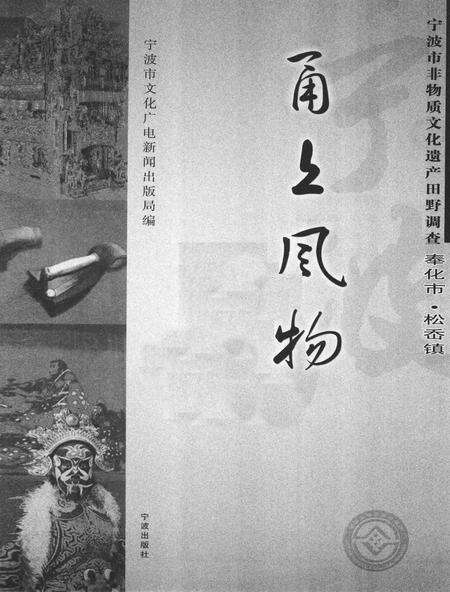 宁波市非物质文化遗产田野调查 奉化市·松岙镇
甬上风物
宁波市文化广电新闻出版局编
宁波出版社